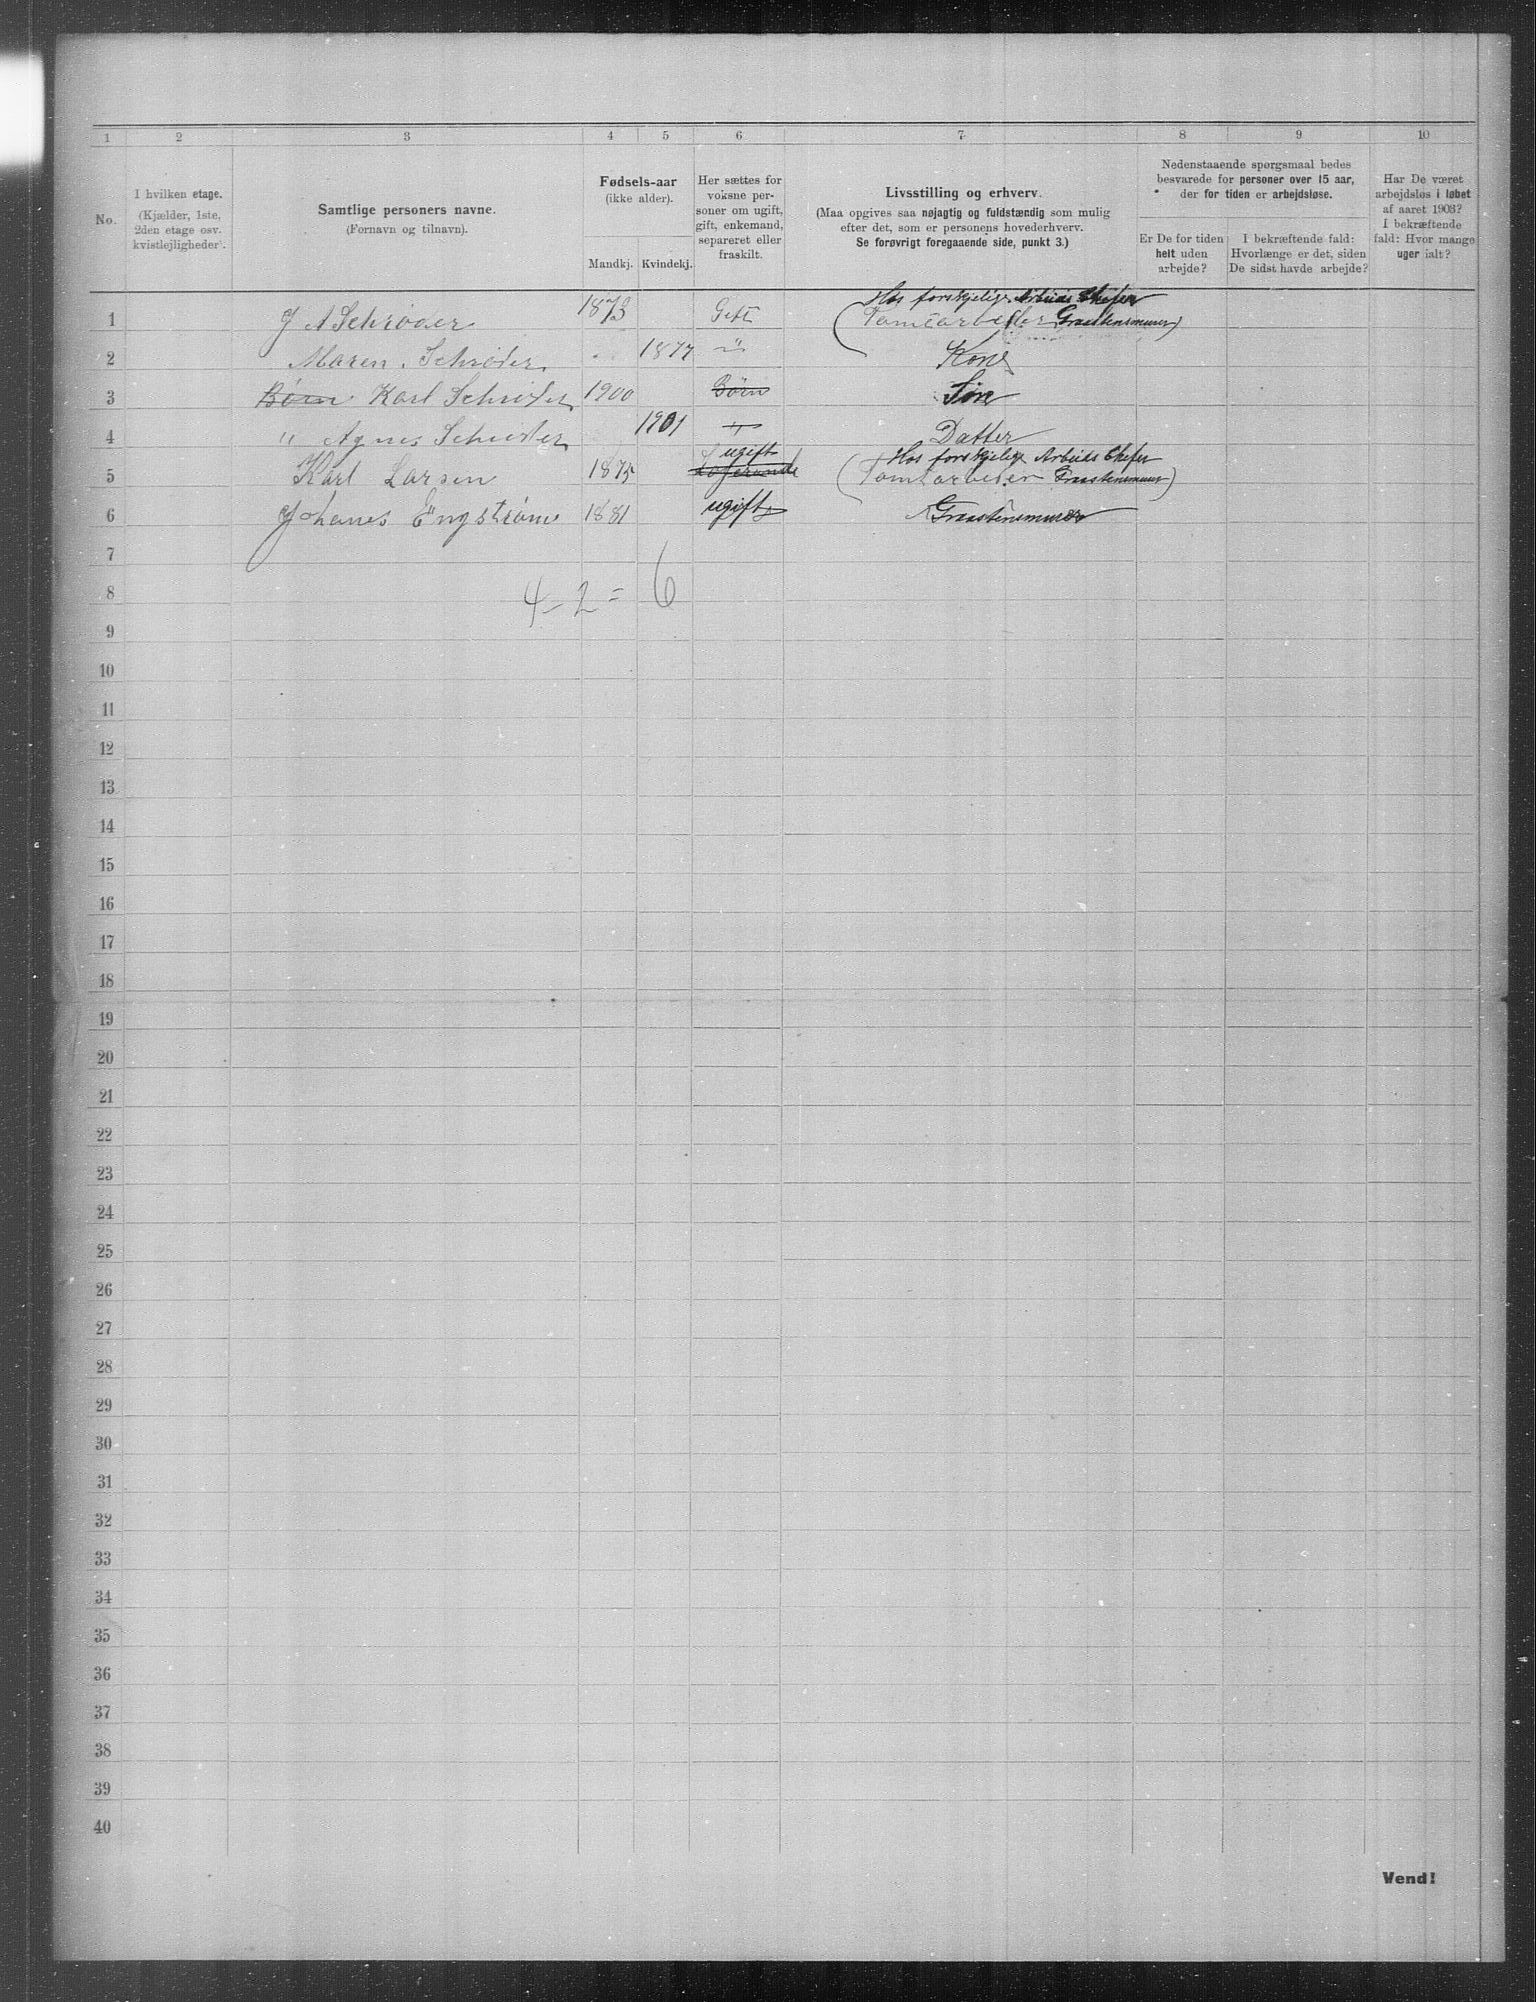 1 2 3 4 5 6 7 8 9 10
No.
I hvilken etage.
(Kjælder, 1ste,
2den etage osv.
kvistlejligheder).
Samtlige personers navne.
(Fornavn og tilnavn).
Fødsels-aar
(ikke alder).
Mandkj. Kvindekj.
Her sættes for
voksne per-
soner om ugift,
gift, enkemand,
separeret eller
fraskilt.
Livsstilling og erhverv.
(Maa opgives saa nøjagtig og fuldstændig som mulig
efter det, som er personens hovederhverv.
Se forøvrigt foregaaende side, punkt 3.)
Nedenstaaende spørgsmaal bedes
besvarede for personer over 15 aar,
der for tiden er arbejdsløse.
Er De for tiden
helt uden
arbejde?
I bekræftende fald:
Hvorlænge er det, siden
De sidst havde arbejde?
Har De været
arbejdsløs i løbet
af aaret 1903?
I bekræftende
fald: Hvor mange
uger ialt?
Hos forskjelige Arbeids Chefer
1 J A Schrøder 1873 Gift (Tomtarbeider Graastensmurer)
2 Maren Schrøder 1877 " Kone
3 Børn Karl Schrøder 1900 Børn Søn
4 " Agnes Schrøder 1901 " Datter
ugift Hos forskjelige Arbeids Chefer
5 Karl Larsen 1875 Logerende (Tomtarbeider Graastensmurer)
6 Johanes Engstrøm 1881 ugift Graastensmurer
7
8 4-2 = 6
9
10
11
12
13
14
15
16
17
18
19
20
21
22
23
24
25
26
27
28
29
30
31
32
33
34
35
36
37
38
39
40
Vend!